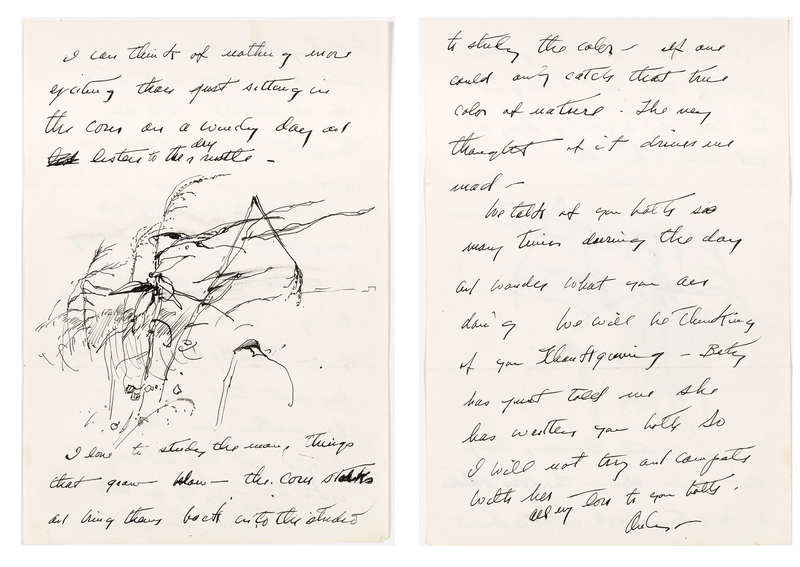 I can think of nothing more
exciting than just sitting in
the corn on a windy day and
listen to the dry rustle –
I love to study the many things
that grow – the corn stalks
and bring them back into the studio
to study the color – if one
could only catch that true
color of nature. The very
thought of it drives me
mad –
We talk of you both so
many times during the day
and wonder what you are
doing We will be thinking
of you Thanksgiving – Betsy
has just told me she
has written you both so
I will not try and compete
with her
all my love to you both.